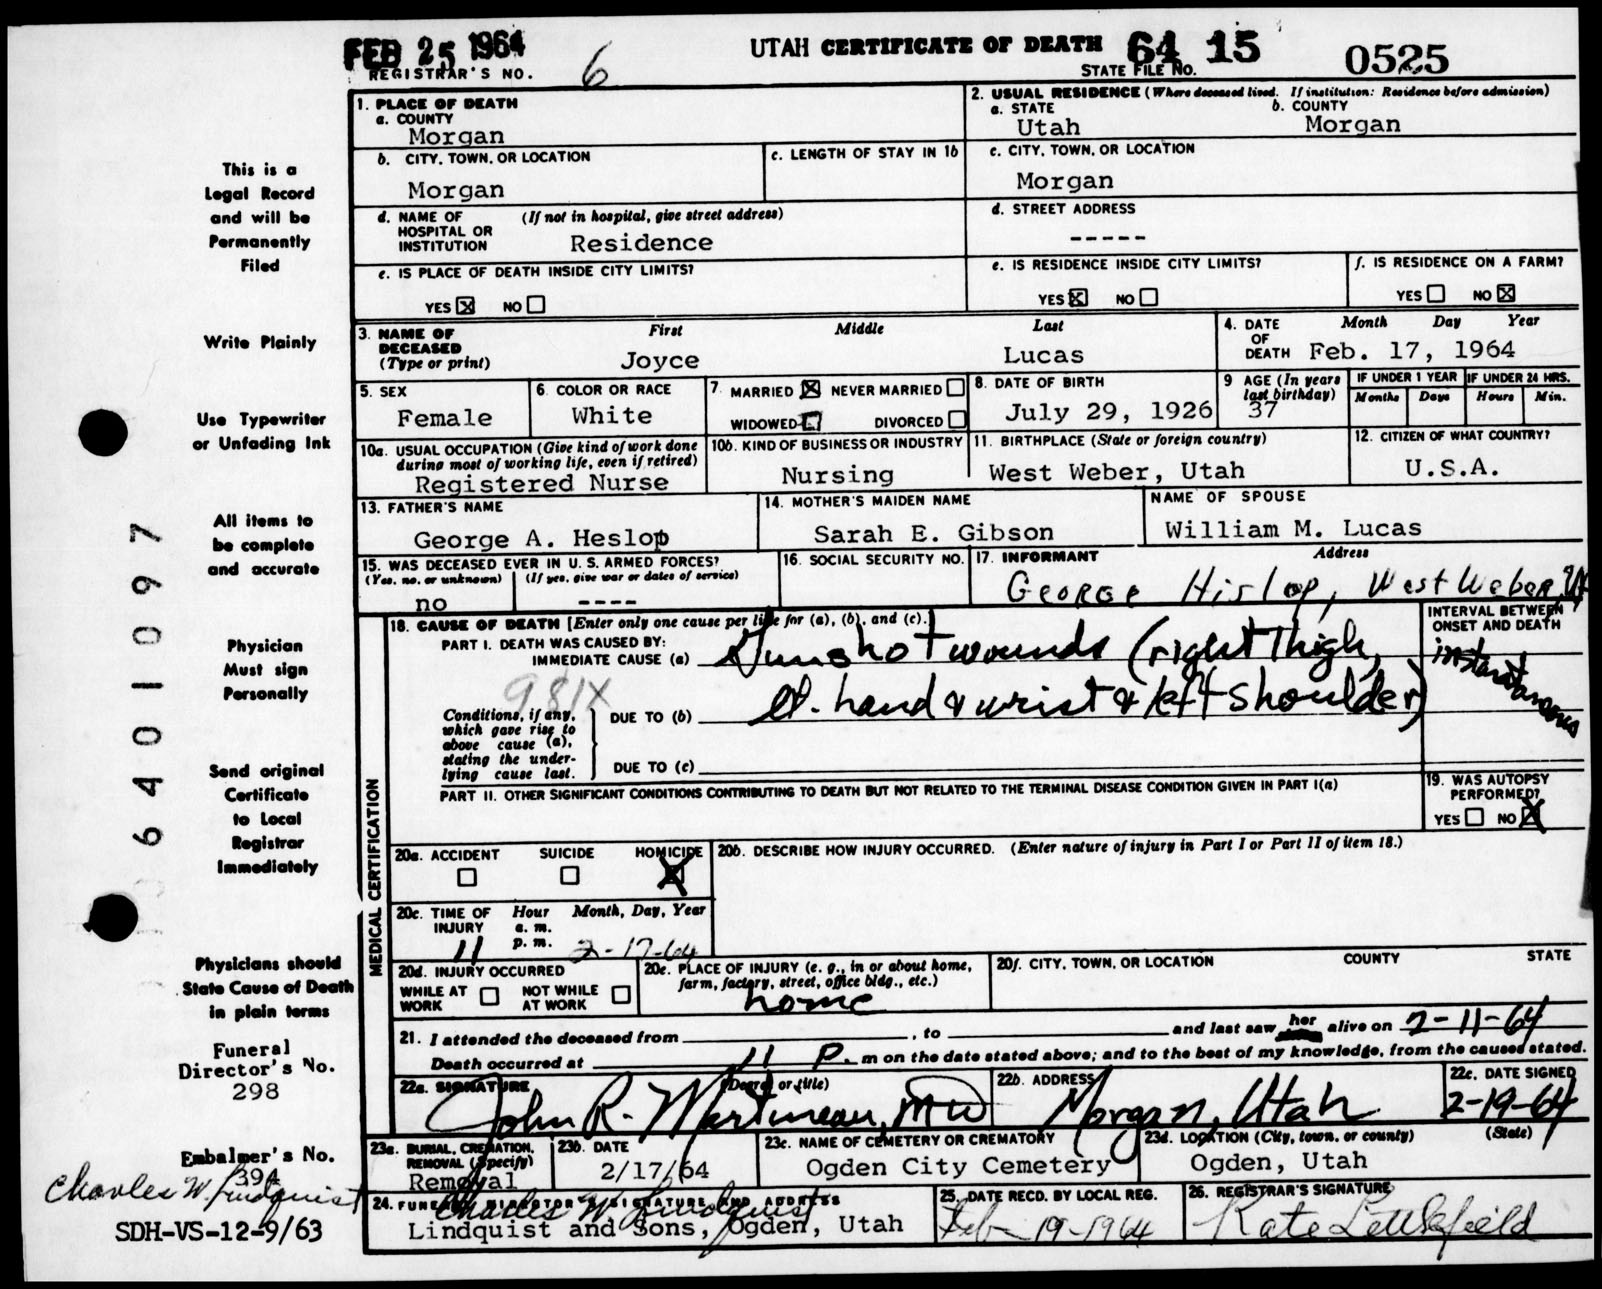 FEB 25 1964
UTAH CERTIFICATE OF DEATH 64 15 0525
REGISTRAR'S NO. 6
STATE FILE NO.
1. PLACE OF DEATH
a. COUNTY
Morgan
2. USUAL RESIDENCE (Where deceased lived. If institution: Residence before admission)
a. STATE b. COUNTY
Utah Morgan
b. CITY, TOWN, OR LOCATION
Morgan
c. LENGTH OF STAY IN 1b
c. CITY, TOWN, OR LOCATION
Morgan
d. NAME OF (If not in hospital, give street address)
HOSPITAL OR
INSTITUTION Residence
d. STREET ADDRESS
-----
e. IS PLACE OF DEATH INSIDE CITY LIMITS?
YES X NO
e. IS RESIDENCE INSIDE CITY LIMITS?
YES X NO
f. IS RESIDENCE ON A FARM?
YES NO X
3. NAME OF First Middle Last
DECEASED
(Type or print) Joyce Lucas
4. DATE Month Day Year
OF
DEATH Feb. 17, 1964
5. SEX
Female
6. COLOR OR RACE
White
7. MARRIED X NEVER MARRIED
WIDOWED DIVORCED
8. DATE OF BIRTH
July 29, 1926
9 AGE (In years
last birthday)
37
IF UNDER 1 YEAR IF UNDER 24 HRS.
Months Days Hours Min.
10a. USUAL OCCUPATION (Give kind of work done
during most of working life, even if retired)
Registered Nurse
10b. KIND OF BUSINESS OR INDUSTRY
Nursing
11. BIRTHPLACE (State or foreign country)
West Weber, Utah
12. CITIZEN OF WHAT COUNTRY?
U.S.A.
13. FATHER'S NAME
George A. Heslop
14. MOTHER'S MAIDEN NAME
Sarah E. Gibson
NAME OF SPOUSE
William M. Lucas
15. WAS DECEASED EVER IN U. S. ARMED FORCES?
(Yes, no, or unknown) (If yes, give war or dates of service)
no ----
16. SOCIAL SECURITY NO.
17. INFORMANT Address
George Hislop, West Weber, Ut
18. CAUSE OF DEATH [Enter only one cause per line for (a), (b), and (c).]
PART I. DEATH WAS CAUSED BY:
IMMEDIATE CAUSE (a) Gunshot wounds (right thigh,
981X
Conditions, if any,
which gave rise to
above cause (a),
stating the under-
lying cause last.
DUE TO (b) lt. hand & wrist & left shoulder)
DUE TO (c)
INTERVAL BETWEEN
ONSET AND DEATH
instantaneous
PART II. OTHER SIGNIFICANT CONDITIONS CONTRIBUTING TO DEATH BUT NOT RELATED TO THE TERMINAL DISEASE CONDITION GIVEN IN PART I(a)
19. WAS AUTOPSY
PERFORMED?
YES NO X
MEDICAL CERTIFICATION
20a. ACCIDENT SUICIDE HOMICIDE
X
20b. DESCRIBE HOW INJURY OCCURRED. (Enter nature of injury in Part I or Part II of item 18.)
20c. TIME OF Hour Month, Day, Year
INJURY a. m.
11 p. m. 2-17-64
20d. INJURY OCCURRED
WHILE AT WORK NOT WHILE AT WORK
20e. PLACE OF INJURY (e. g., in or about home,
farm, factory, street, office bldg., etc.)
home
20f. CITY, TOWN, OR LOCATION COUNTY STATE
21. I attended the deceased from , to and last saw her alive on 2-11-64
Death occurred at 11 P. m on the date stated above; and to the best of my knowledge, from the causes stated.
22a. SIGNATURE (Degree or title)
John R. Martineau, MD
22b. ADDRESS
Morgan, Utah
22c. DATE SIGNED
2-19-64
23a. BURIAL, CREMATION,
REMOVAL (Specify)
Removal
23b. DATE
2/17/64
23c. NAME OF CEMETERY OR CREMATORY
Ogden City Cemetery
23d. LOCATION (City, town, or county) (State)
Ogden, Utah
24. FUNERAL DIRECTOR'S SIGNATURE AND ADDRESS
Charles W. Lindquist
Lindquist and Sons, Ogden, Utah
25. DATE RECD. BY LOCAL REG.
Feb 19-1964
26. REGISTRAR'S SIGNATURE
Kate Littlefield
This is a
Legal Record
and will be
Permanently
Filed
Write Plainly
Use Typewriter
or Unfading Ink
All items to
be complete
and accurate
Physician
Must sign
Personally
Send original
Certificate
to Local
Registrar
Immediately
Physicians should
State Cause of Death
in plain terms
Funeral
Director's No.
298
Embalmer's No.
394
Charles W. Lindquist
SDH-VS-12-9/63
6401097